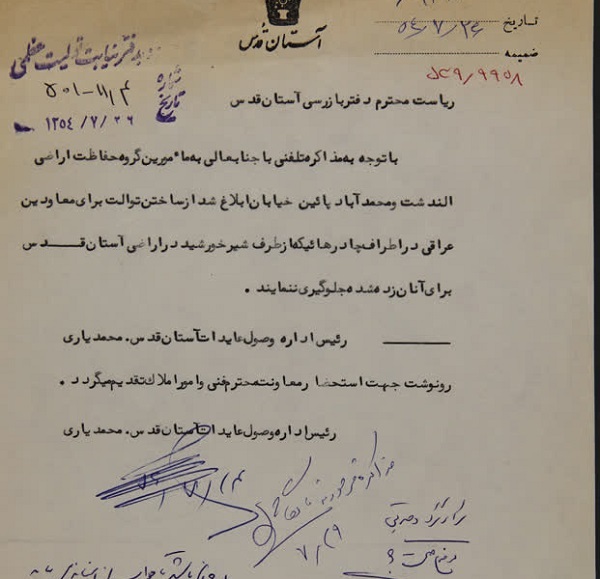 آستان قدس
تاریخ ۵۴/۷/۲۴
ضمیمه
دفتر نیابت تولیت عظمی
شماره ۵۰۱-۱۱/۴
تاریخ ۱۳۵۴/۷/۲۶
ریاست محترم دفتر بازرسی آستان قدس
با توجه به مذاکره تلفنی با جنابعالی به مأمورین گروه حفاظت اراضی
الندشت و محمد آباد پائین خیابان ابلاغ شد از ساختن توالت برای معاودین
عراقی در اطراف چادرهائیکه از طرف شیر خورشید در اراضی آستان قدس
برای آنان زده شده جلوگیری ننمایند .
رئیس اداره وصول عایدات آستان قدس. محمد یاری
رونوشت جهت استحضار معاونت محترم فنی و امور املاک تقدیم میگردد .
رئیس اداره وصول عایدات آستان قدس. محمد یاری
۷/۲۹